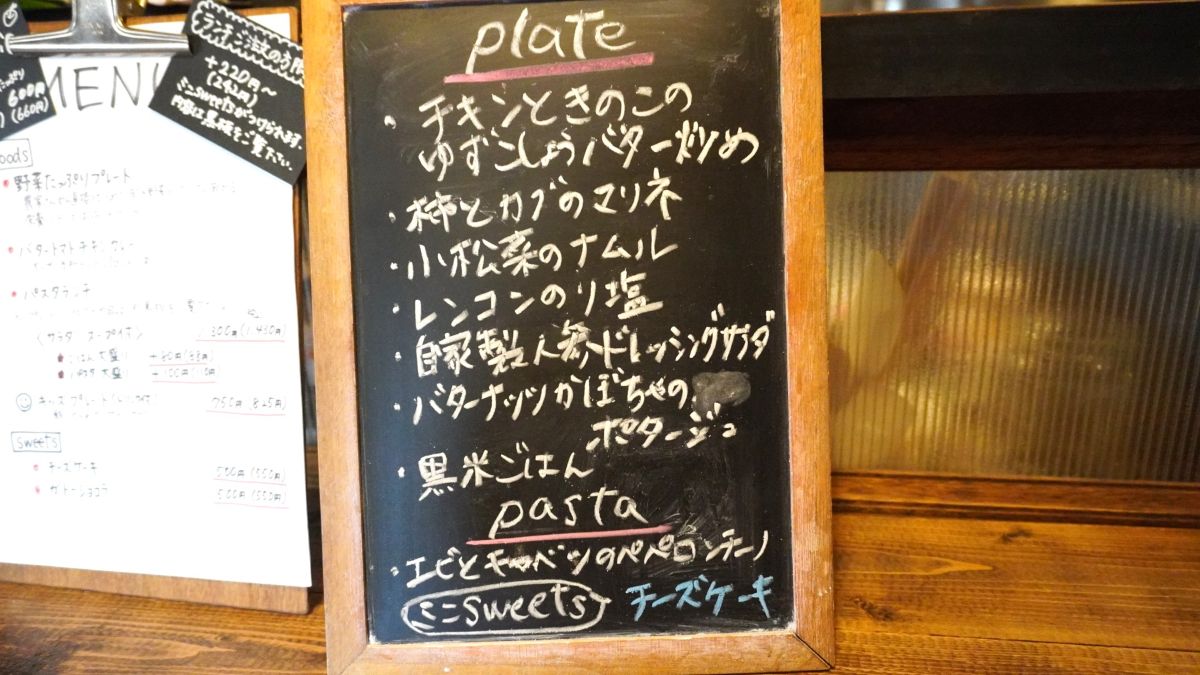 plate
・チキンときのこの
ゆずこしょうバター炒め
・柿とカブのマリネ
・小松菜のナムル
・レンコンのり塩
・自家製人参ドレッシングサラダ
・バターナッツかぼちゃの
ポタージュ
・黒米ごはん
pasta
・エビとキャベツのペペロンチーノ
ミニsweets チーズケーキ
MENU
600円
(660円)
ランチご注文の方限
+220円〜
(242円)
ミニsweetsがつけられます。
内容は黒板をご覧下さい。
foods
・野菜たっぷりプレート
・バタートマトチキンカレー
・パスタランチ
(サラダ スープ付き) 1,300円(1,430円)
ごはん大盛り +80円(88円)
パスタ大盛り +100円(110円
キッズプレート 750円 825円)
sweets
・チーズケーキ 500円(550円)
・ガトーショコラ 500円(550円)